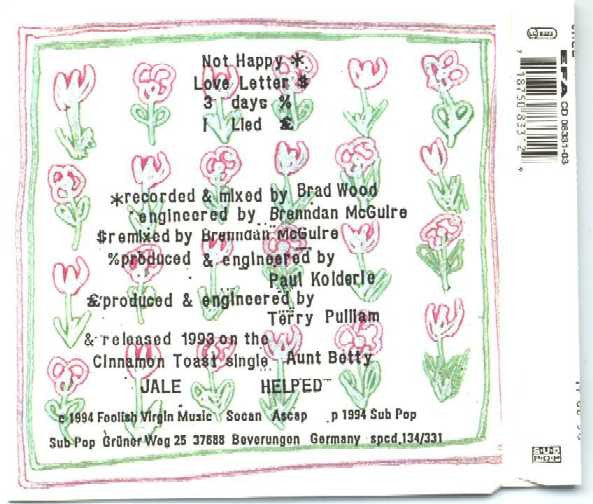 Not Happy *
Love Letter $
3 days %
I Lied £
*recorded & mixed by Brad Wood
engineered by Brenndan McGuire
$remixed by Brenndan McGuire
%produced & engineered by
Paul Kolderie
£produced & engineered by
Terry Pulliam
& released 1993 on the
Cinnamon Toast single Aunt Betty
JALE HELPED
c 1994 Foolish Virgin Music Socan Ascap p 1994 Sub Pop
Sub Pop Grüner Weg 25 37688 Beverungen Germany spcd,134/331
EFA CD 08331-03
SUB
POP